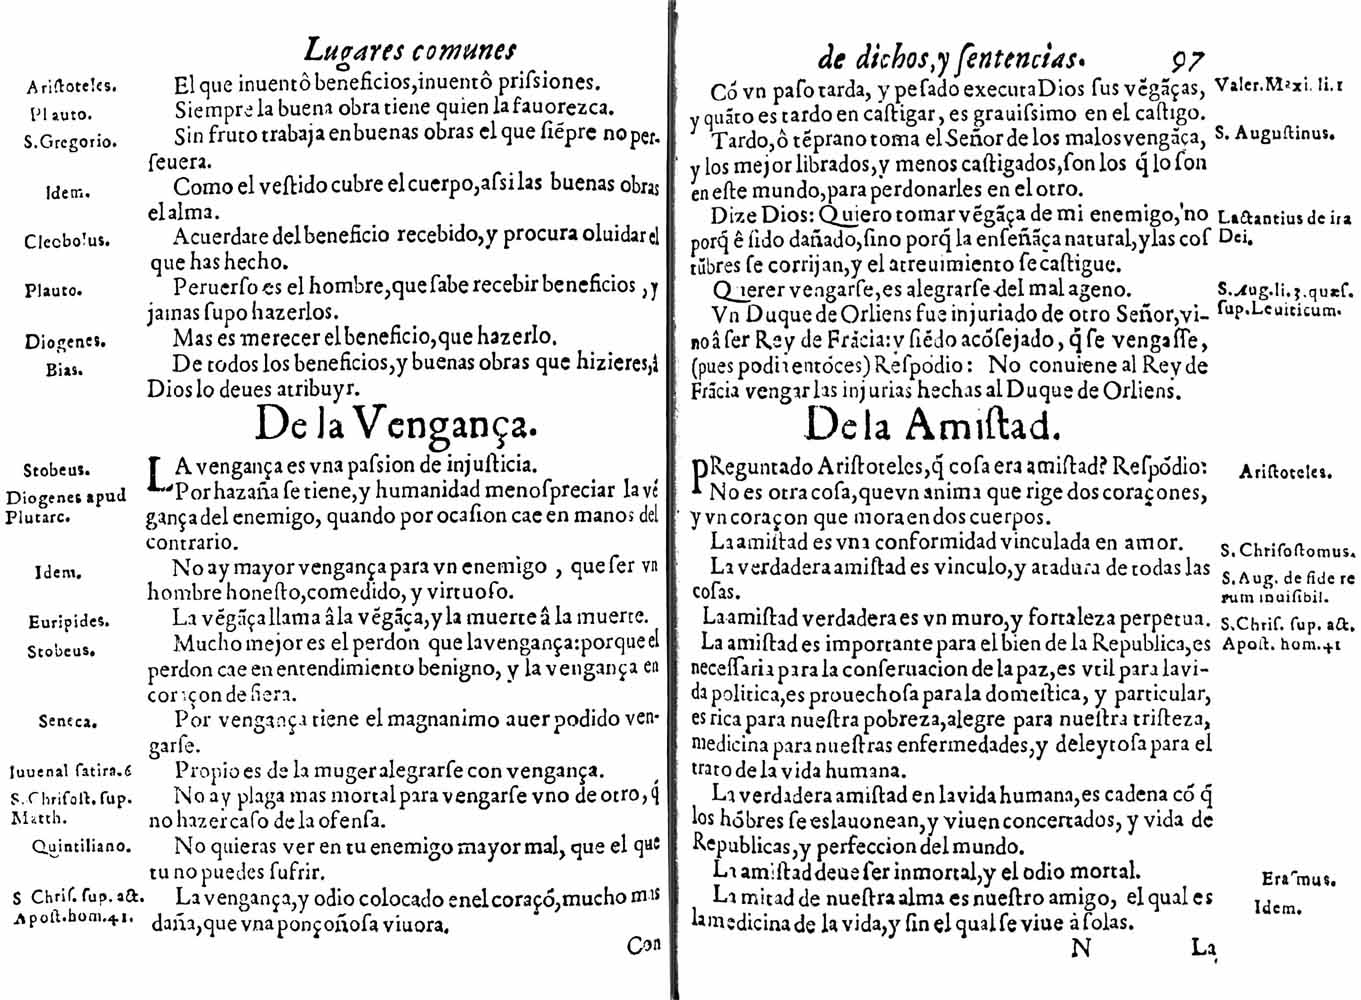 Lugares comunes
Aristoteles. El que inuentô beneficios,inuentô prisiones.
Plauto. Siempre la buena obra tiene quien la fauorezca.
S.Gregorio. Sin fruto trabaja en buenas obras el que siẽpre no per-
seuera.
Idem. Como el vestido cubre el cuerpo,assi las buenas obras
el alma.
Cleobolus. Acuerdate del beneficio recebido,y procura oluidar el
que has hecho.
Plauto. Peruerso es el hombre,que sabe recebir beneficios ,y
jamas supo hazerlos.
Diogenes. Mas es merecer el beneficio,que hazerlo.
Bias. De todos los beneficios,y buenas obras que hizieres,â
Dios lo deues atribuyr.
De la Vengança.
Stobeus. LA vengança es vna passion de injusticia.
Diogenes apud Plutarc. Por hazaña se tiene,y humanidad menospreciar la vẽ
gança del enemigo, quando por ocasion cae en manos del
contrario.
Idem. No ay mayor vengança para vn enemigo , que ser vn
hombre honesto,comedido, y virtuoso.
Euripides. La vẽgãça llama âla vẽgãça,y la muerte â la muerte.
Stobeus. Mucho mejor es el perdon que la vengança:porque el
perdon cae en entendimiento benigno, y la vengança en
coraçon de fiera.
Seneca. Por vengança tiene el magnanimo auer podido ven-
garse.
Iuuenal satira.6 Propio es de la muger alegrarse con vengança.
S.Chrisost.sup. Matth. No ay plaga mas mortal para vengarse vno de otro,q̃
no hazer caso de la ofensa.
Quintiliano. No quieras ver en tu enemigo mayor mal, que el que
tu no puedes sufrir.
S Chris. sup. act. Apost.hom.41. La vengança,y odio colocado enel coraçõ,mucho mas
daña,que vna ponçoñosa viuora.
Con
de dichos,y sentencias. 97
Cõ vn paso tarda, y pesado executa Dios sus vẽgãças, Valer.Maxi. li.1
y quãto es tardo en castigar, es grauissimo en el castigo.
Tardo,ô tẽprano toma el Señor de los malos vengãça, S. Augustinus.
y los mejor librados,y menos castigados,son los q̃ lo son
en este mundo,para perdonarles en el otro.
Dize Dios: Quiero tomar vẽgãça de mi enemigo,no Lactantius de ira
porq̃ ê sido dañado,sino porq̃ la enseñãça natural,y las cos Dei.
tũbres se corrijan,y el atreuimiento se castigue.
Querer vengarse,es alegrarse del mal ageno. S.Aug.li.3.quæs.
Vn Duque de Orliens fue injuriado de otro Señor,vi- sup.Leuiticum.
no â ser Rey de Frãcia:y siẽdo acõsejado, q̃ se vengasse,
(pues podia entõces) Respõdio: No conuiene al Rey de
Frãcia vengar las injurias hechas al Duque de Orliens.
De la Amistad.
PReguntado Aristoteles,q̃ cosa era amistad? Respõdio: Aristoteles.
No es otra cosa,que vn anima que rige dos coraçones,
y vn coraçon que mora en dos cuerpos.
La amistad es vna conformidad vinculada en amor. S. Chrisostomus.
La verdadera amistad es vinculo,y atadura de todas las S.Aug. de fide re
cosas. rum inuisibil.
La amistad verdadera es vn muro,y fortaleza perpetua. S.Chris. sup. act.
La amistad es importante para el bien de la Republica,es Apost. hom.41
necessaria para la conseruacion de la paz,es vtil para la vi-
da politica,es prouechosa para la domestica, y particular,
es rica para nuestra pobreza,alegre para nuestra tristeza,
medicina para nuestras enfermedades,y deleytosa para el
trato de la vida humana.
La verdadera amistad en la vida humana,es cadena cõ q̃
los hõbres se eslauonean,y viuen concertados, y vida de
Republicas,y perfeccion del mundo.
La amistad deue ser inmortal,y el odio mortal. Erasmus.
La mitad de nuestra alma es nuestro amigo, el qual es Idem.
la medicina de la vida,y sin el qual se viue â solas.
N La